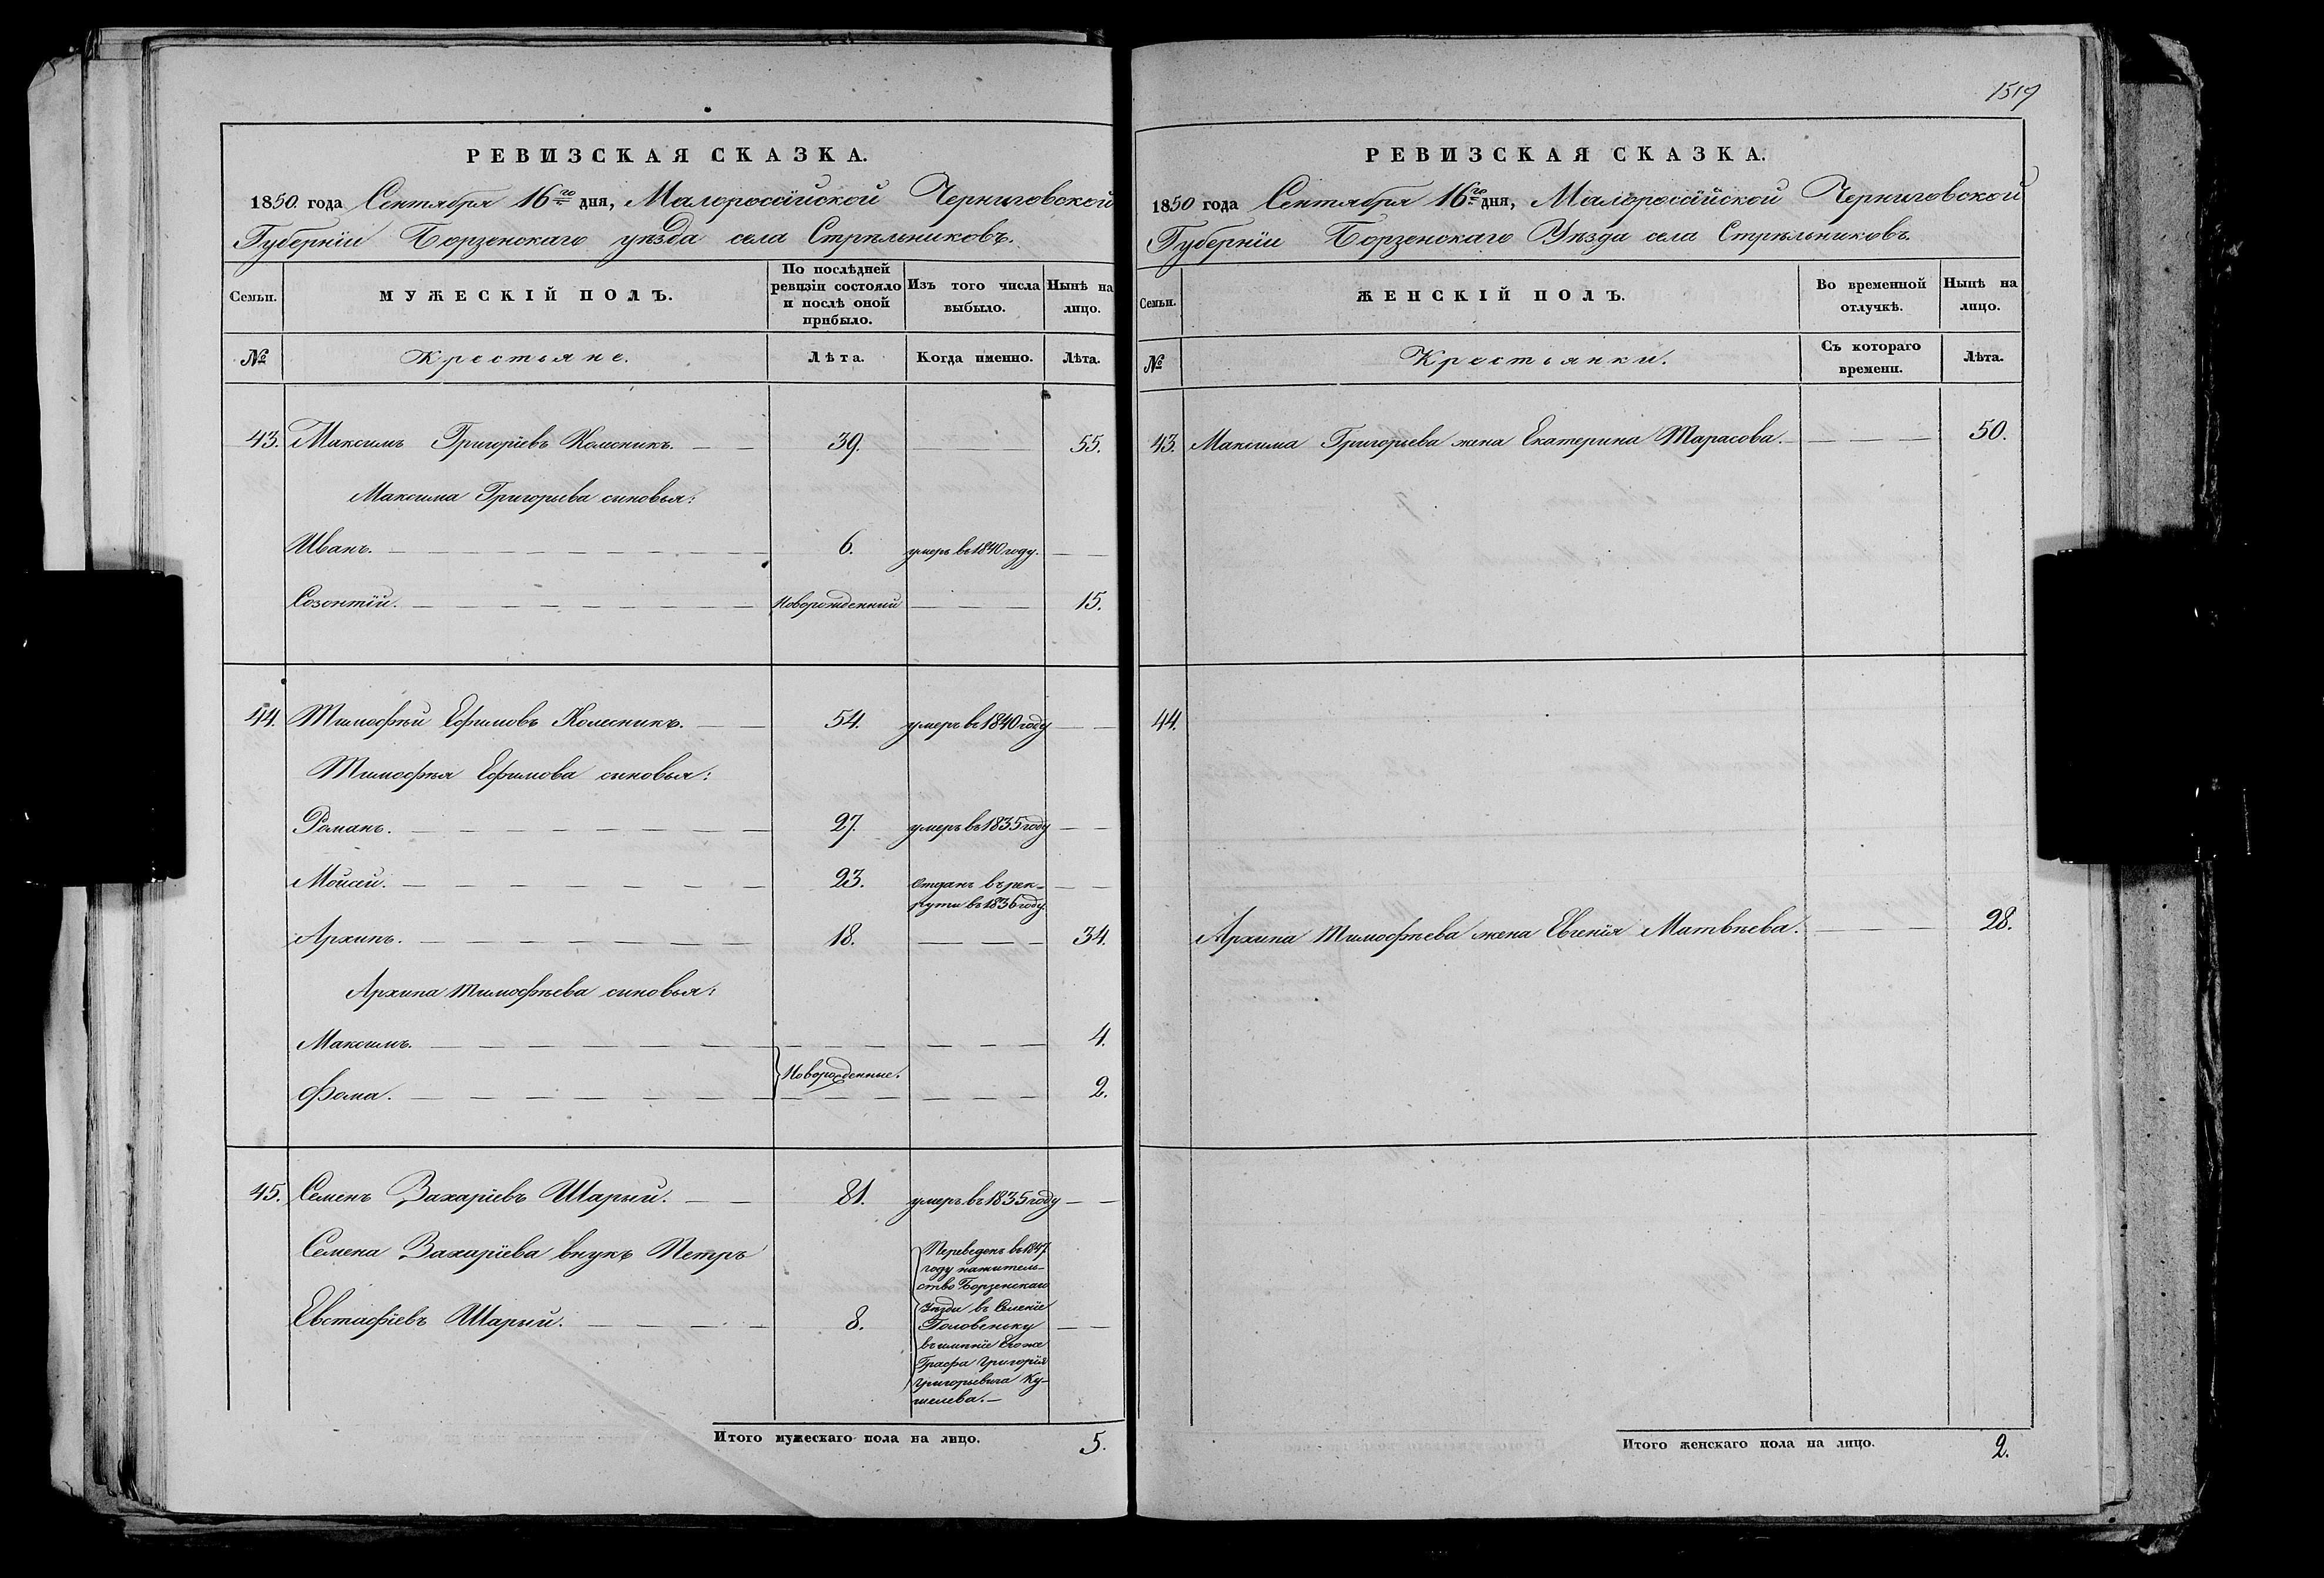 РЕВИЗСКАЯ СКАЗКА.
1850. года Сентября 16го дня, Малороссійской Черниговской
Губерніи Борзенскаго уѣзда села Стрѣльниковъ.
Семьи.
МУЖЕСКІЙ ПОЛЪ.
По послѣдней ревизіи состояло и послѣ оной прибыло.
Изъ того числа выбыло.
Нынѣ на лицо.
№
Крестьяне.
Лѣта.
Когда именно.
Лѣта.
43. Максимъ Григоріевъ Колесникъ. 39. 55.
Максима Григорьева синовья:
Иванъ. 6. умеръ въ 1840 году.
Созонтій. Новорожденний 15.
44. Тимофѣй Ефимовъ Колесникъ. 54. умеръ въ 1840 году
Тимофѣя Ефимова синовья:
Романъ. 27. умеръ въ 1835 году
Мойсей. 23. отданъ въ рек-
рути въ 1836 году.
Архипъ. 18. 34.
Архипа Тимофѣева синовья:
Максимъ. 4.
Новорожденные.
Фома. 2.
45. Семенъ Захаріевъ Шарый. 81. умеръ въ 1835 году
Семена Захаріева внукъ Петръ
Евстафіевъ Шарый. 8.
Переведенъ въ 1847
году нажитель-
ство Борзенскаго
Уѣзда въ Селеніе
Головеньку
въ имѣніе Егоже
Графа Григорія
Григорьевича Ку-
шелева.
Итого мужескаго пола на лицо. 5.
1519
РЕВИЗСКАЯ СКАЗКА.
1850 года Сентября 16го дня, Малороссійской Черниговской
Губерніи Борзенскаго Уѣзда села Стрѣльниковъ.
Семьи.
ЖЕНСКІЙ ПОЛЪ.
Во временной отлучкѣ.
Нынѣ на лицо.
№
Крестьянки.
Съ котораго времени.
Лѣта.
43. Максима Григорьева жена Екатерина Тарасова. 50.
44.
Архипа Тимофѣева жена Евгенія Матвѣева. 28.
Итого женскаго пола на лицо. 2.